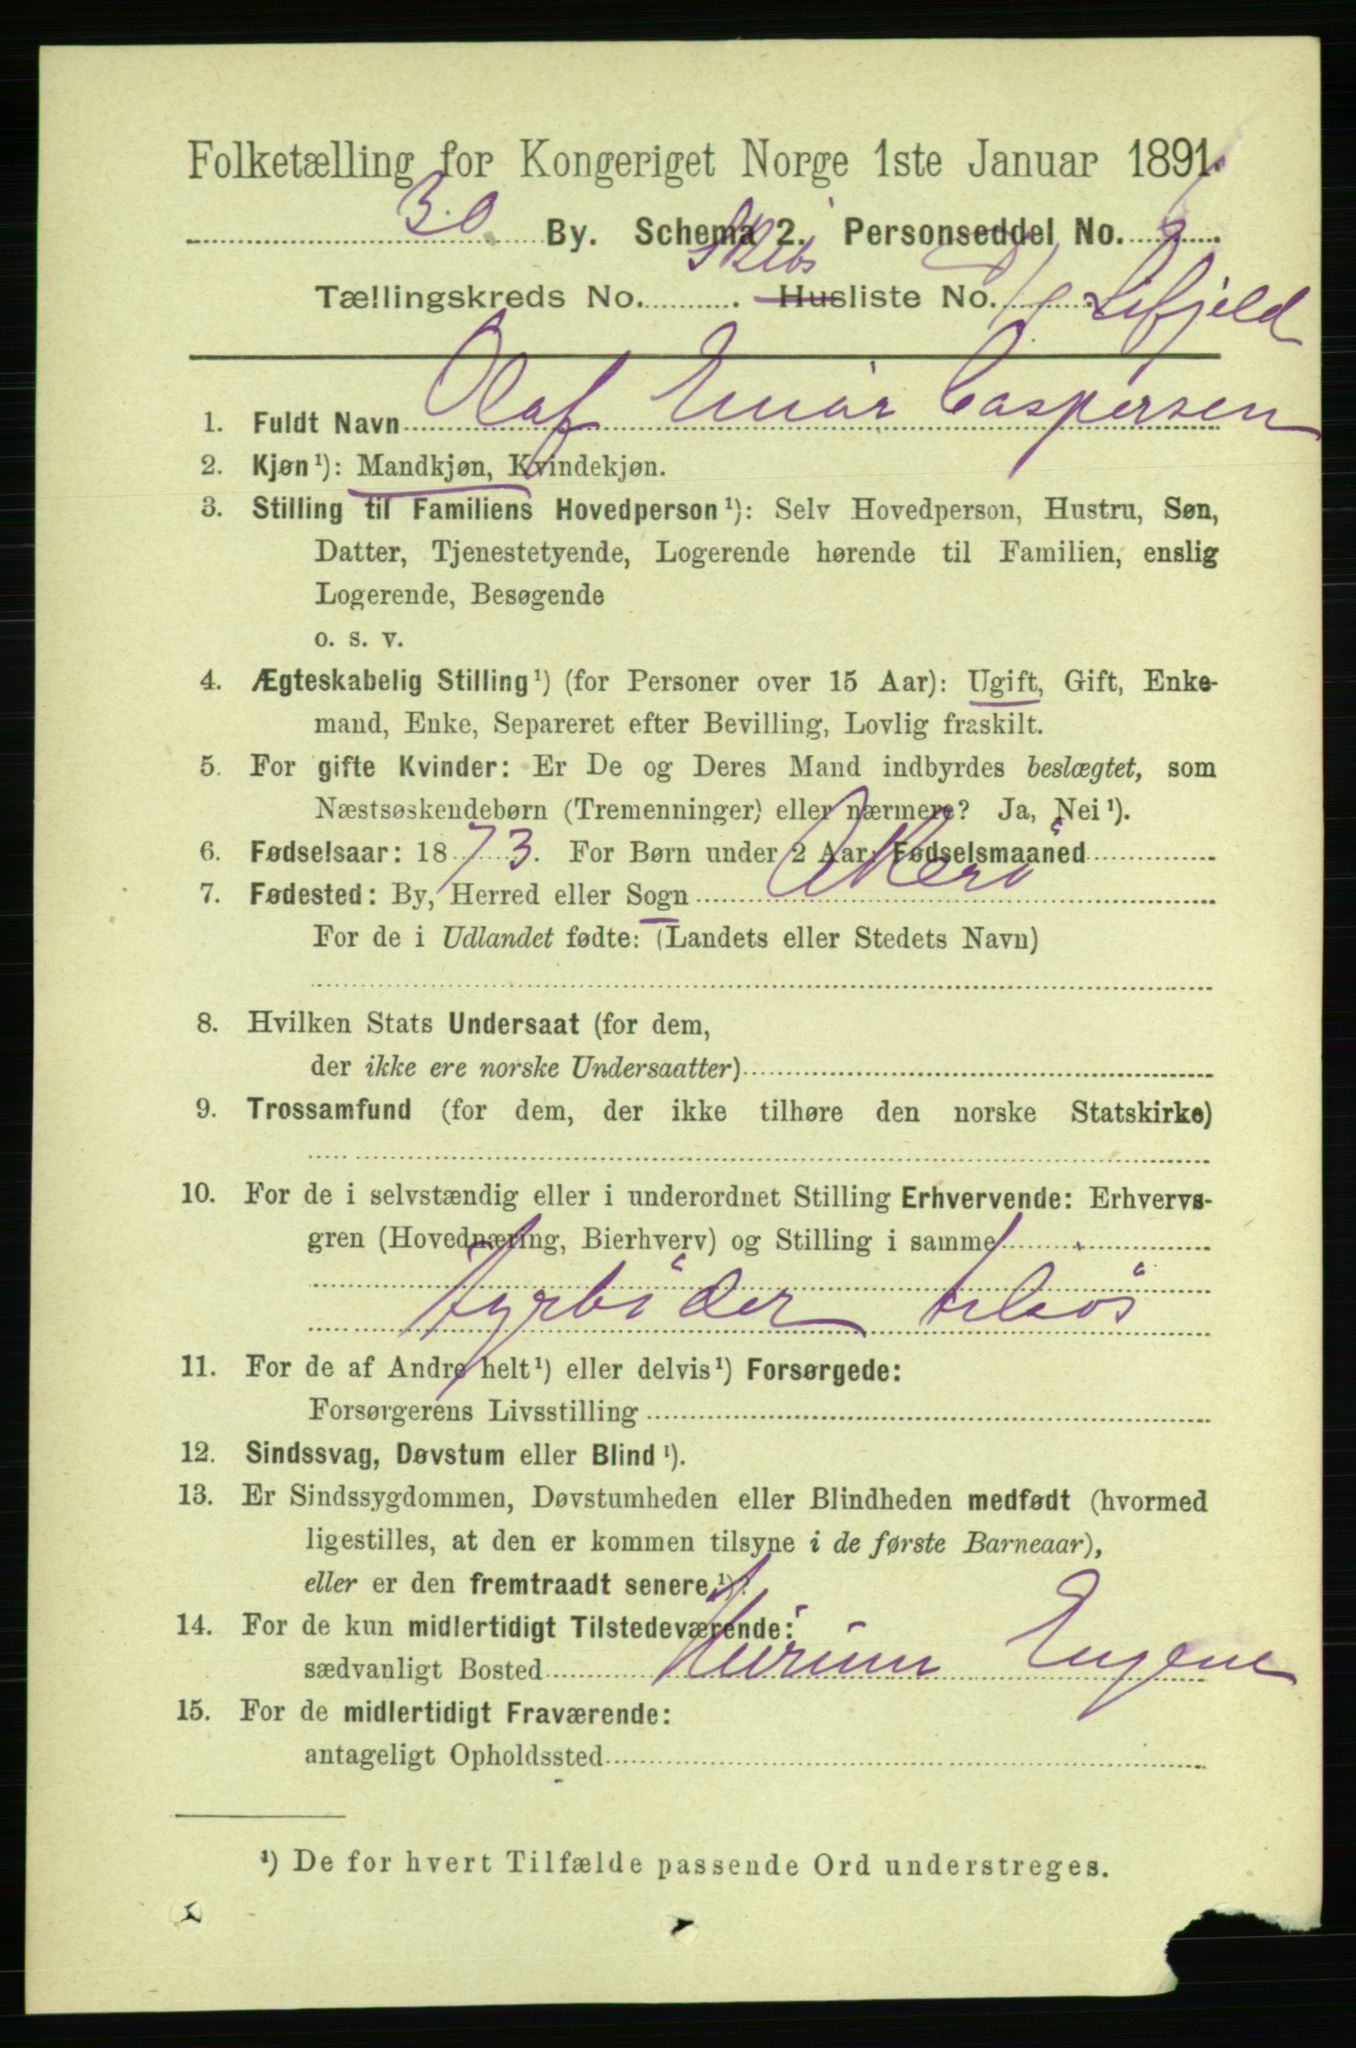 Folketælling for Kongeriget Norge 1ste Januar 1891.
30 By. Schema 2. Personseddel No. 6
Tællingskreds No. Skibs Husliste No.
1. Fuldt Navn Olaf Einar Caspersen
2. Kjøn ¹): Mandkjøn, Kvindekjøn.
3. Stilling til Familiens Hovedperson ¹): Selv Hovedperson, Hustru, Søn,
Datter, Tjenestetyende, Logerende hørende til Familien, enslig
Logerende, Besøgende
o. s. v.
4. Ægteskabelig Stilling ¹) (for Personer over 15 Aar): Ugift, Gift, Enke-
mand, Enke, Separeret efter Bevilling, Lovlig fraskilt.
5. For gifte Kvinder: Er De og Deres Mand indbyrdes beslægtet, som
Næstsøskendebørn (Tremenninger) eller nærmere? Ja, Nei ¹).
6. Fødselsaar: 1873. For Børn under 2 Aar: Fødselsmaaned
7. Fødested: By, Herred eller Sogn Akerø
For de i Udlandet fødte: (Landets eller Stedets Navn)
8. Hvilken Stats Undersaat (for dem,
der ikke ere norske Undersaatter)
9. Trossamfund (for dem, der ikke tilhøre den norske Statskirke)
10. For de i selvstændig eller i underordnet Stilling Erhvervende: Erhvervs-
gren (Hovednæring, Bierhverv) og Stilling i samme
Fyrbøder
11. For de af Andre helt ¹) eller delvis ¹) Forsørgede:
Forsørgerens Livsstilling
12. Sindssvag, Døvstum eller Blind ¹).
13. Er Sindssygdommen, Døvstumheden eller Blindheden medfødt (hvormed
ligestilles, at den er kommen tilsyne i de første Barneaar),
eller er den fremtraadt senere ¹).
14. For de kun midlertidigt Tilstedeværende:
sædvanligt Bosted
15. For de midlertidigt Fraværende:
antageligt Opholdssted
¹) De for hvert Tilfælde passende Ord understreges.